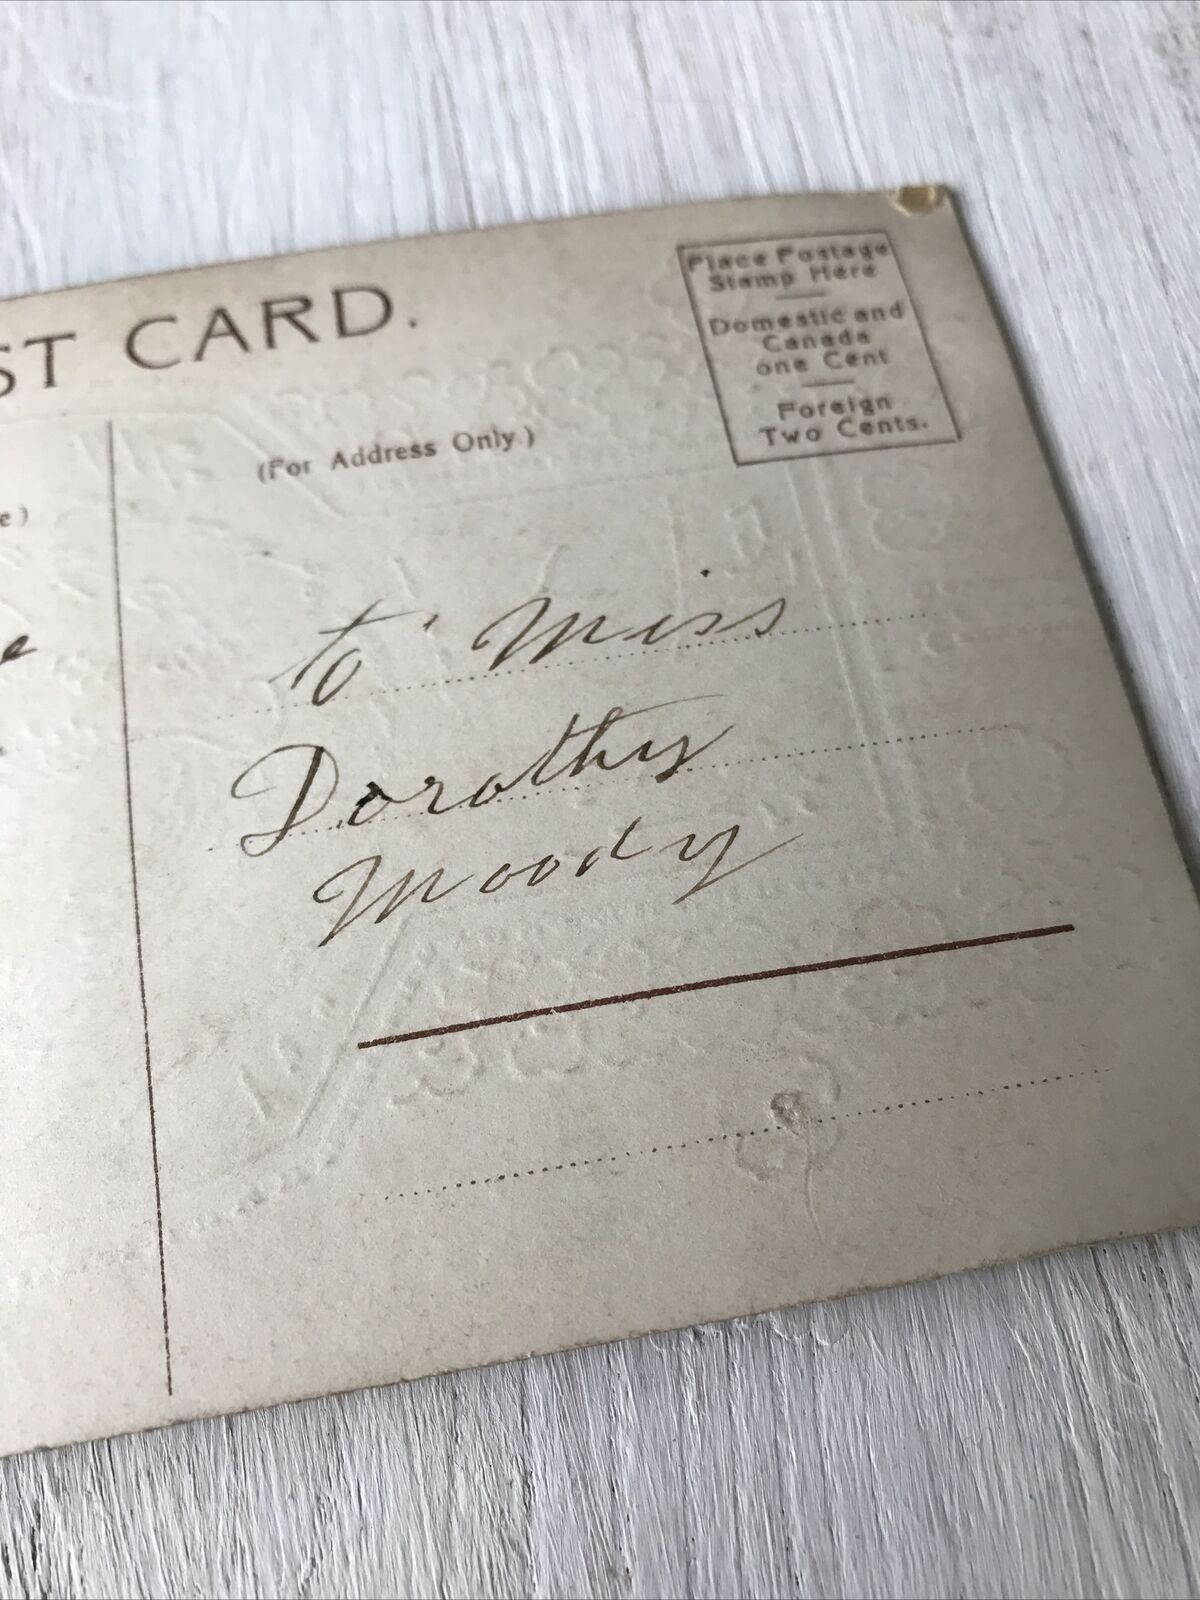 ST CARD.
Place Postage
Stamp Here
Domestic and
Canada
one Cent
Foreign
Two Cents.
(For Address Only.)
e)
e
to Miss
Dorothy
Moody